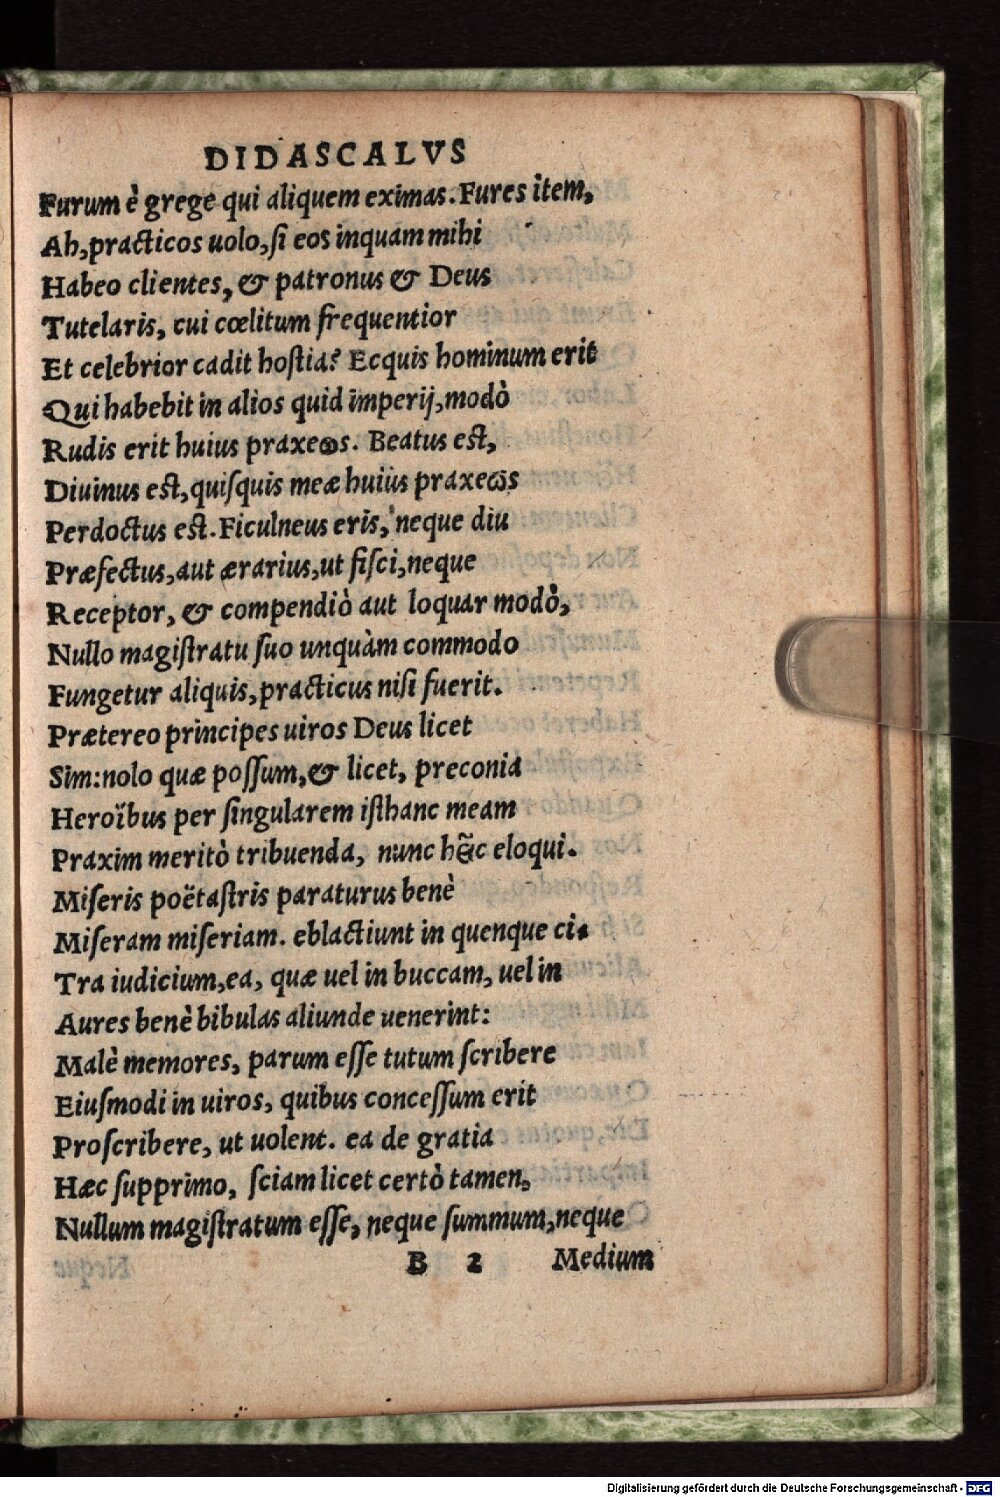 DIDASCALVS
Furum è grege qui aliquem eximas. Fures item,
Ah, practicos uolo, ſi eos inquam mihi
Habeo clientes, & patronus & Deus
Tutelaris, cui cœlitum frequentior
Et celebrior cadit hoſtia? Ecquis hominum erit
Qui habebit in alios quid imperij, modò
Rudis erit huius praxeωs. Beatus est,
Diuinus est, quiſquis meæ huius praxeωs
Perdoctus est. Ficulneus eris, neque diu
Præfectus, aut ærarius, ut fiſci, neque
Receptor, & compendiò aut loquar modò,
Nullo magiſtratu ſuo unquàm commodo
Fungetur aliquis, practicus niſi fuerit.
Prætereo principes uiros Deus licet
Sim: nolo quæ poſſum, & licet, preconia
Heroïbus per ſingularem iſthanc meam
Praxim meritò tribuenda, nunc hæ̃c eloqui.
Miſeris poëtaſtris paraturus benè
Miſeram miſeriam. eblactiunt in quenque ci-
Tra iudicium, ea, quæ uel in buccam, uel in
Aures benè bibulas aliunde uenerint:
Malè memores, parum eſſe tutum ſcribere
Eiuſmodi in uiros, quibus conceſſum erit
Proſcribere, ut uolent. ea de gratia
Hæc ſupprimo, ſciam licet certò tamen,
Nullum magiſtratum eſſe, neque ſummum, neque
B 2 Medium
Digitalisierung gefördert durch die Deutsche Forschungsgemeinschaft - DFG